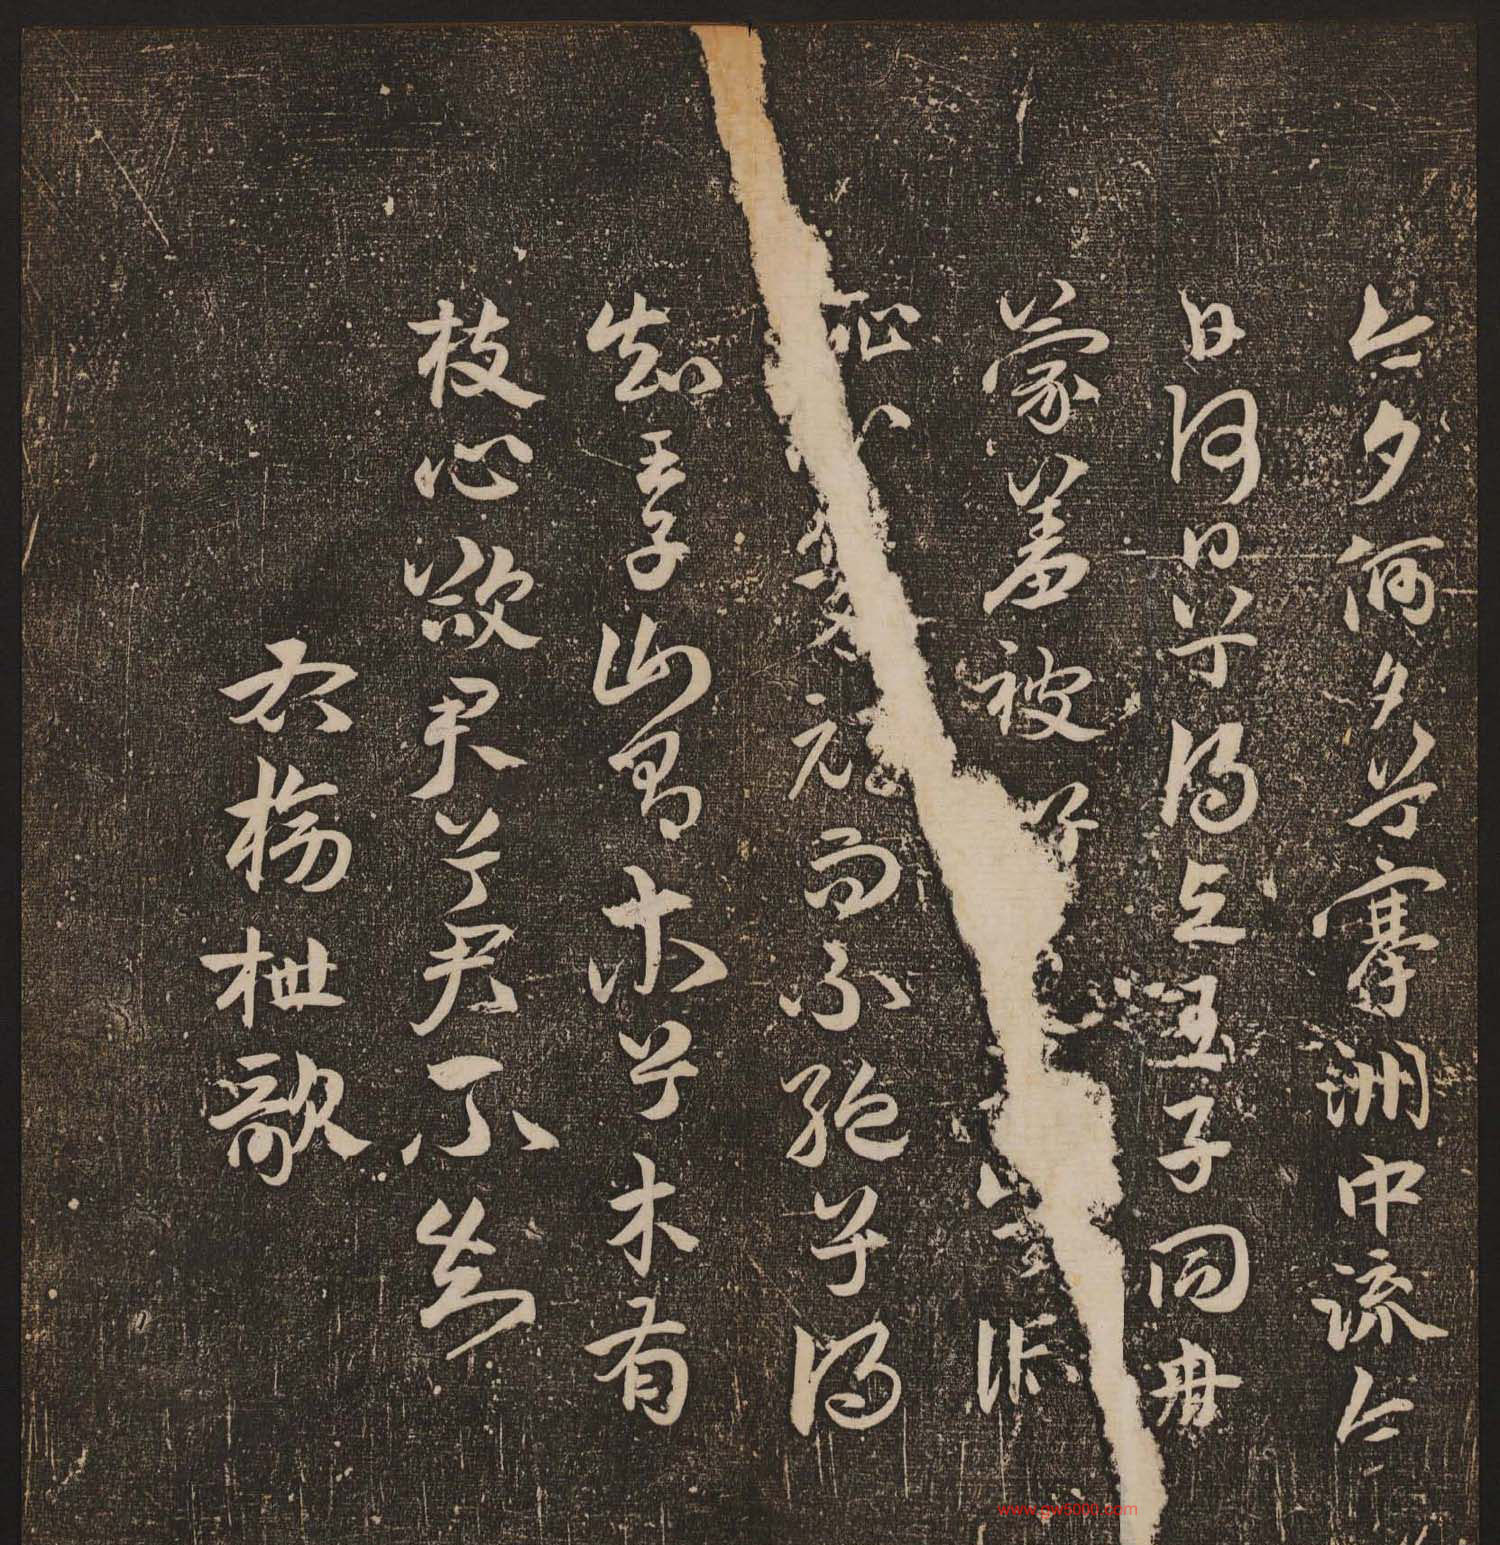 今夕何夕兮搴洲中流今
日何日兮得与王子同舟
蒙羞被好訾
心而不絕兮得
知王子山有木兮木有
枝心欲君兮君不知
右榜枻歌
www.gw5000.com